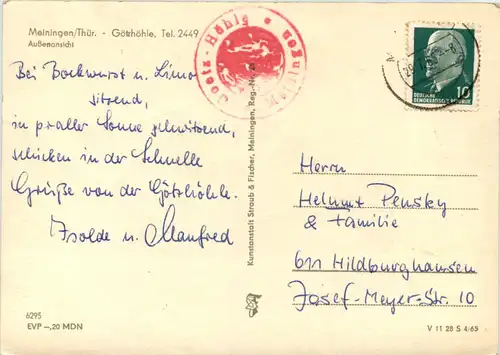 Meiningen/Thür. - Götzhöhle, Tel. 2449
Außenansicht
Goetz-Höhle • Meiningen
Bei Bockwurst u. Limo
sitzend,
in praller Sonne schwitzend,
schicken in der Schnelle
Grüße von der Götzhöhle.
Isolde u. Manfred
6295
EVP –,20 MDN
Kunstanstalt Straub & Fischer, Meiningen, Reg.-Nr.
10
DEUTSCHE
DEMOKRATISCHE REPUBLIK
Herrn
Helmut Pensky
& Familie
611 Hildburghausen
Josef-Meyer-Str. 10
V 11 28 S 4/65